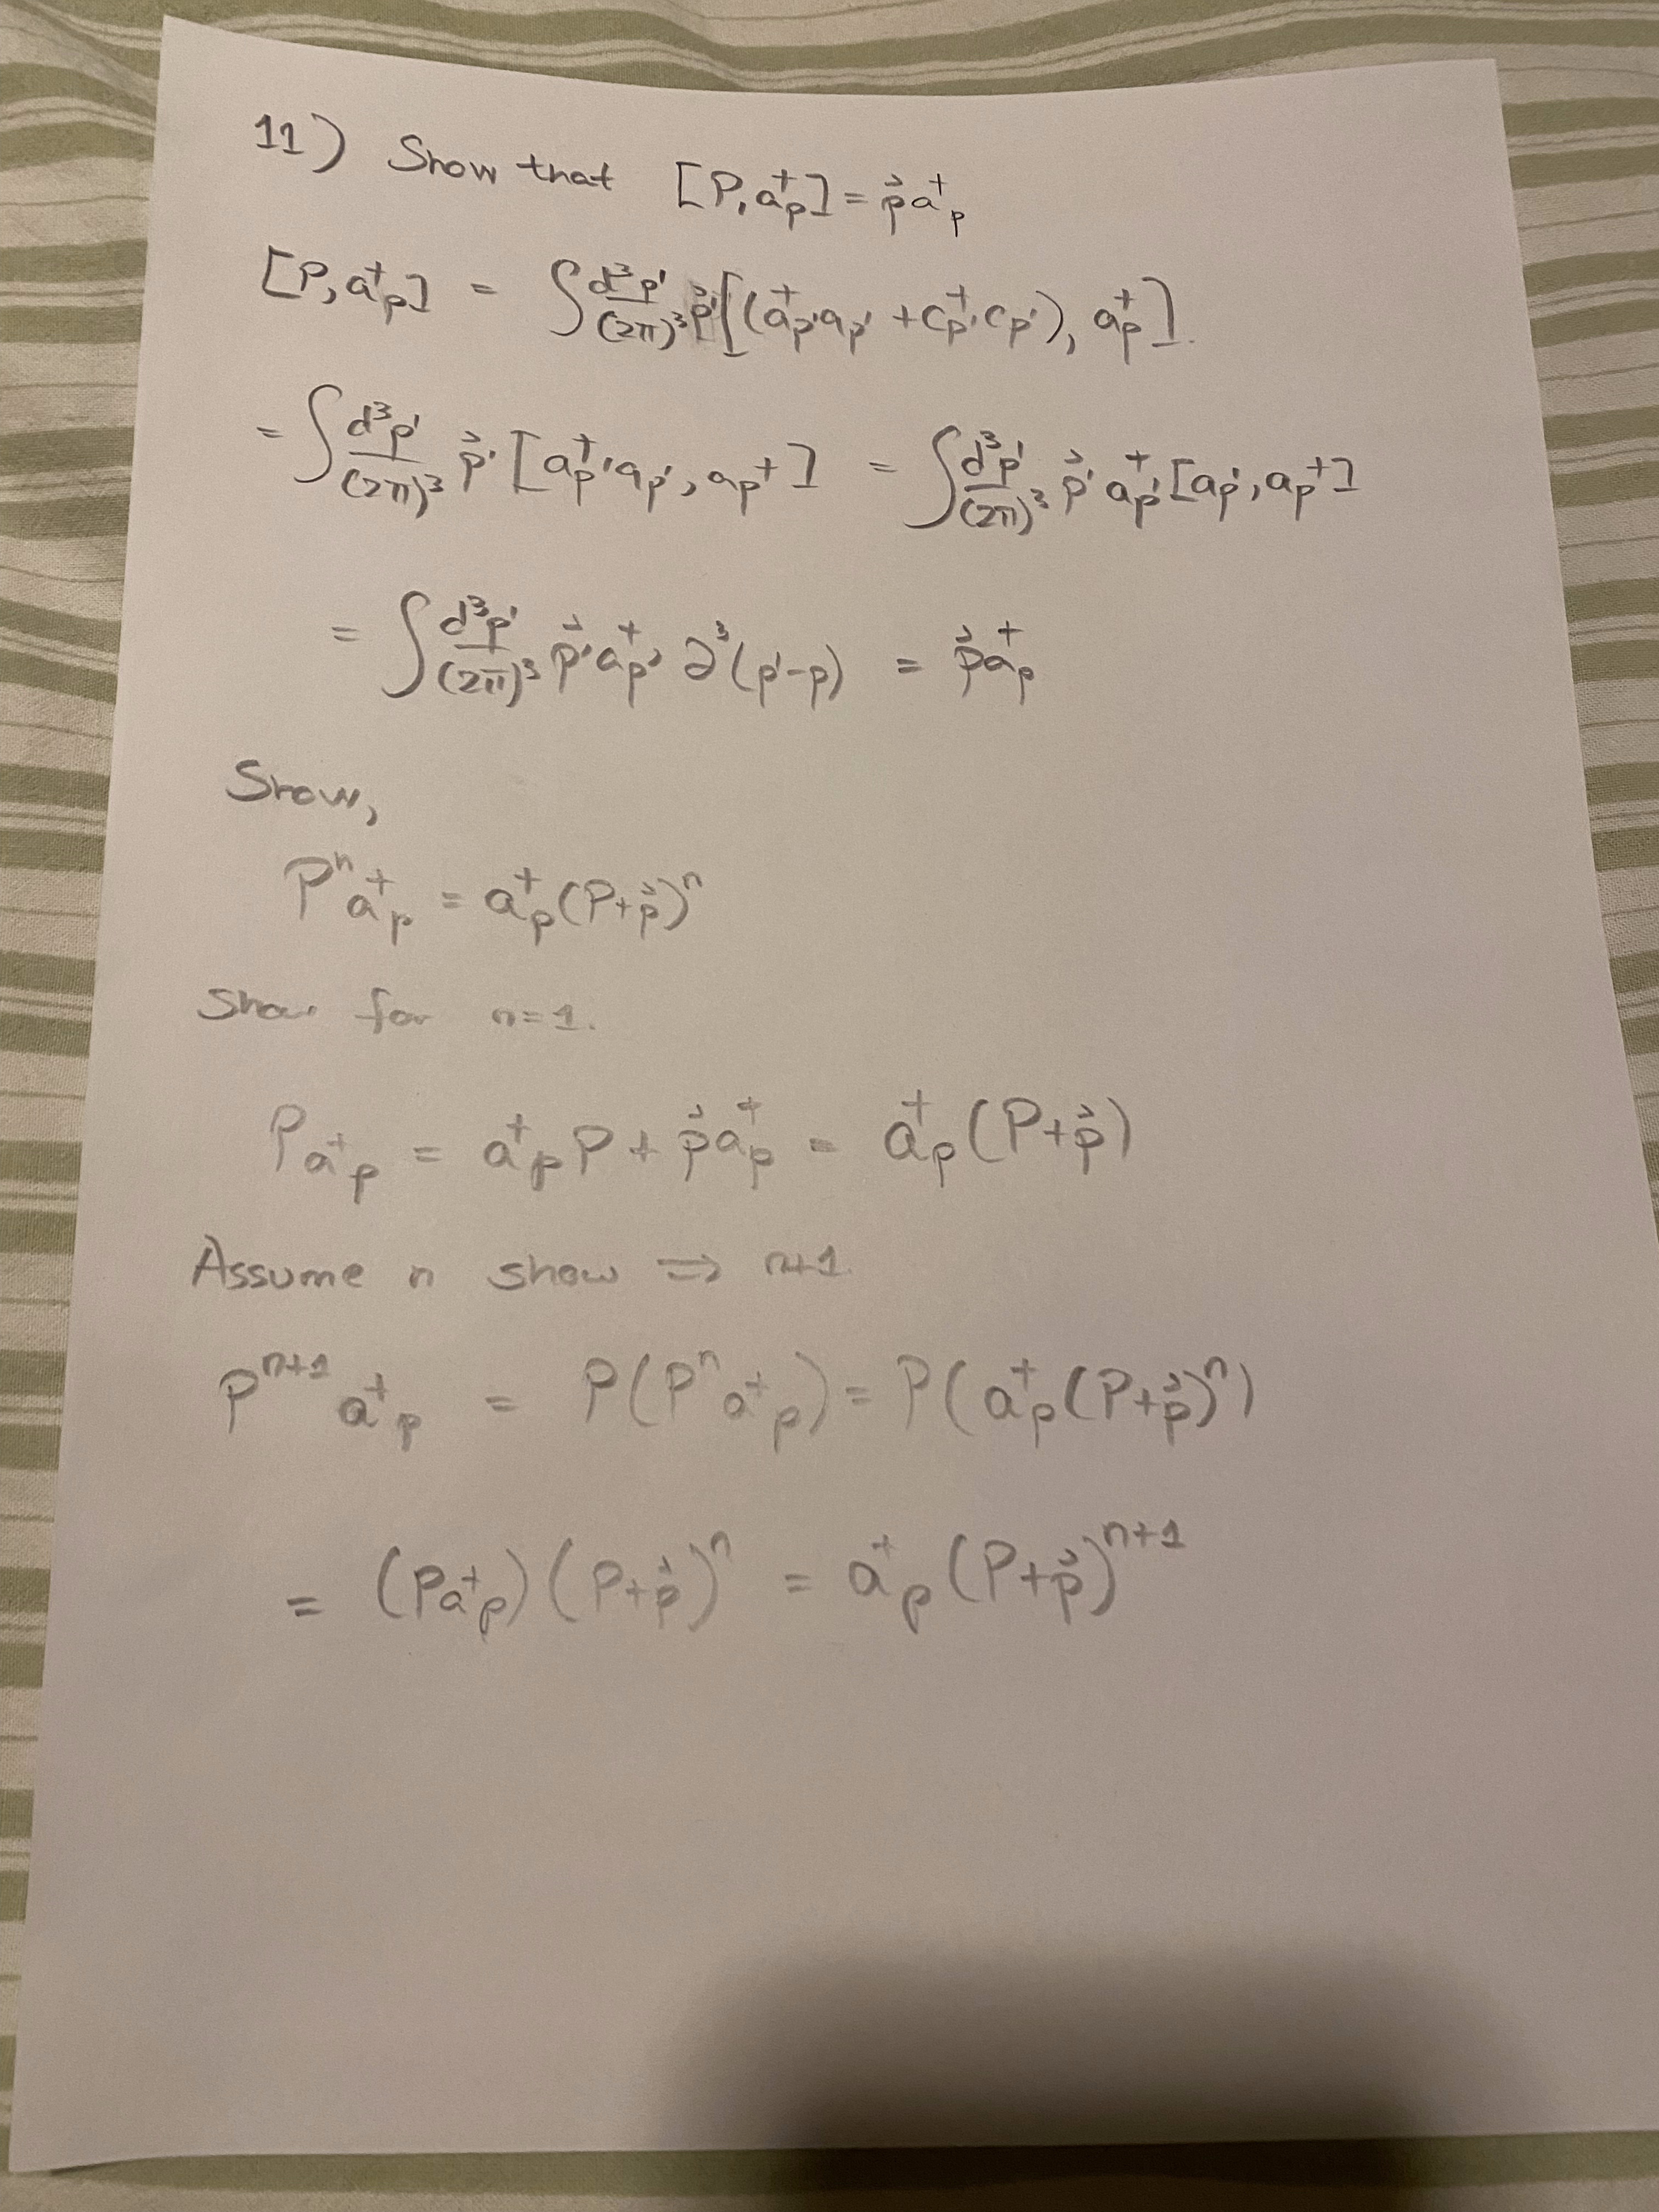 11) Show that [P, a†_p] = p⃗ a†_p
[P, a†_p] = ∫ d³p'/(2π)³ p⃗' [(a†_p' a_p' + c†_p' c_p'), a†_p].
= ∫ d³p'/(2π)³ p⃗' [a†_p' a_p', a_p†] = ∫ d³p'/(2π)³ p⃗' a†_p' [a_p', a_p†]
= ∫ d³p'/(2π)³ p⃗' a†_p' ∂³(p'-p) = p⃗ a†_p
Show,
Pⁿ a†_p = a†_p (P+p⃗)ⁿ
Show for n=1.
P a†_p = a†_p P + p⃗ a†_p = a†_p (P+p⃗)
Assume n show ⇒ n+1.
Pⁿ⁺¹ a†_p = P(Pⁿ a†_p) = P(a†_p (P+p⃗)ⁿ)
= (P a†_p)(P+p⃗)ⁿ = a†_p (P+p⃗)ⁿ⁺¹